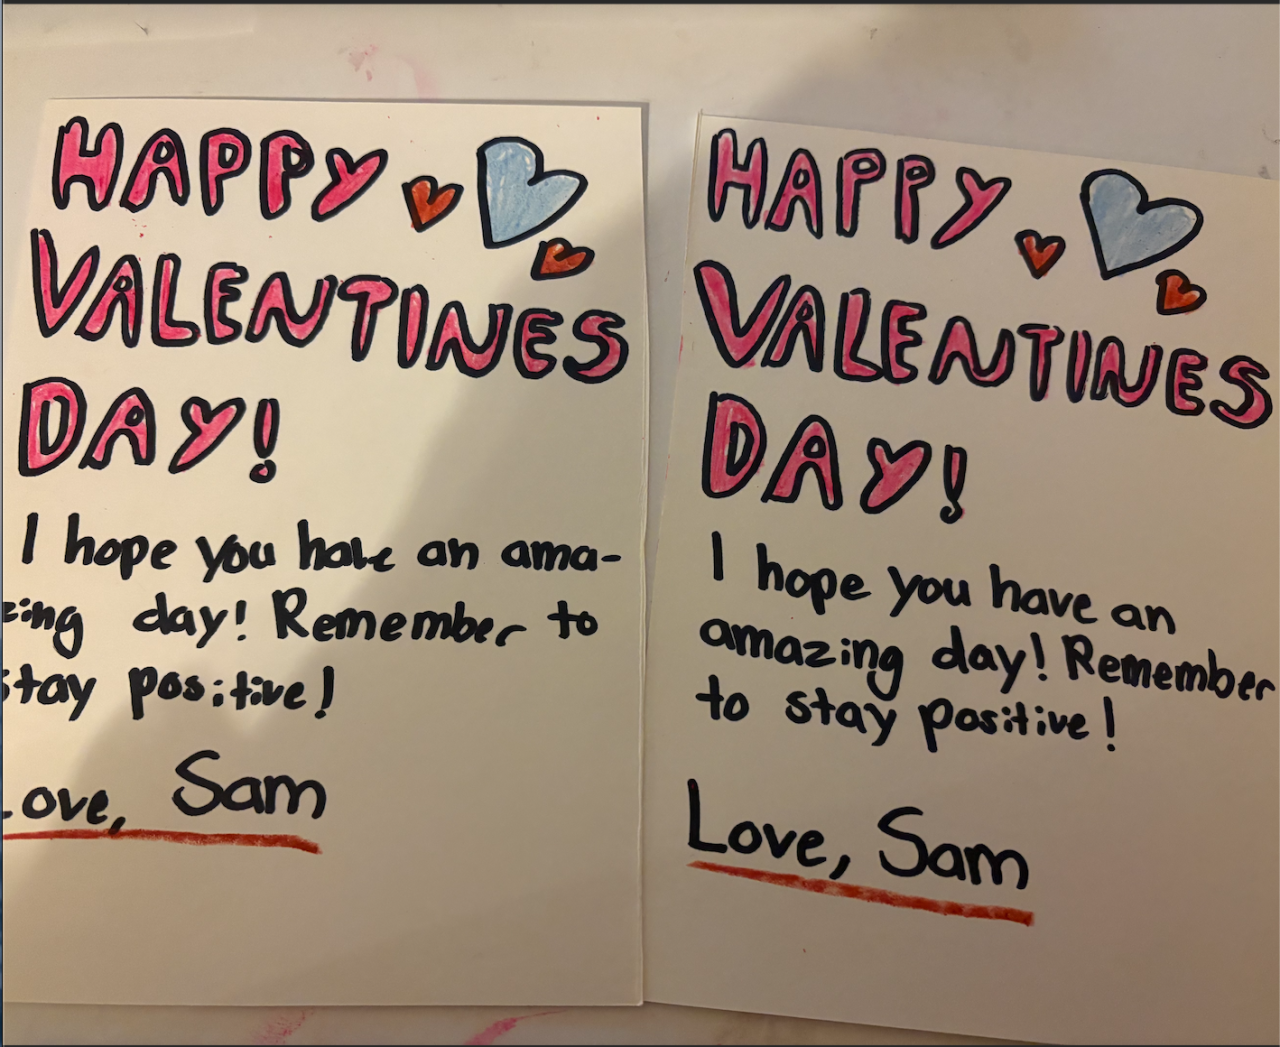 HAPPY
VALENTINES
DAY!
I hope you have an ama-
zing day! Remember to
stay positive!
Love, Sam
HAPPY
VALENTINES
DAY!
I hope you have an
amazing day! Remember
to stay positive!
Love, Sam